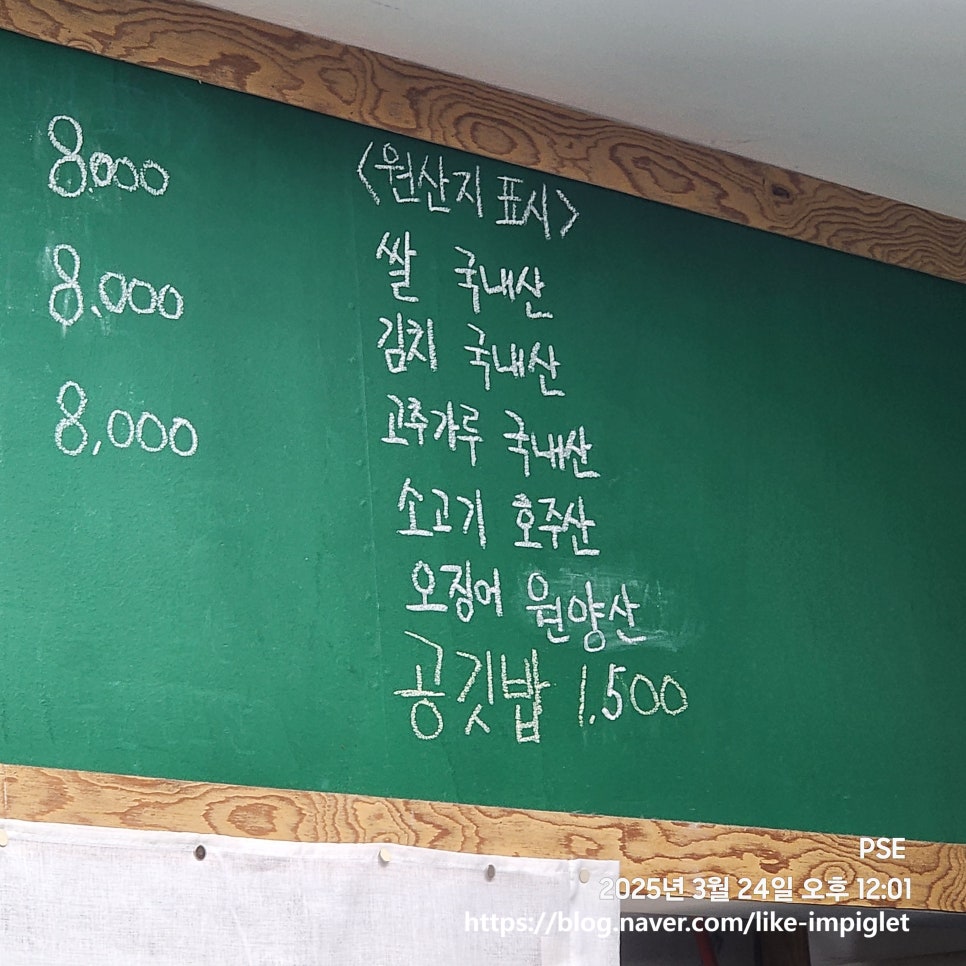 8.000
8.000
8,000
<원산지 표시>
쌀 국내산
김치 국내산
고추가루 국내산
소고기 호주산
오징어 원양산
공깃밥 1.500
PSE
2025년 3월 24일 오후 12:01
https://blog.naver.com/like-impiglet